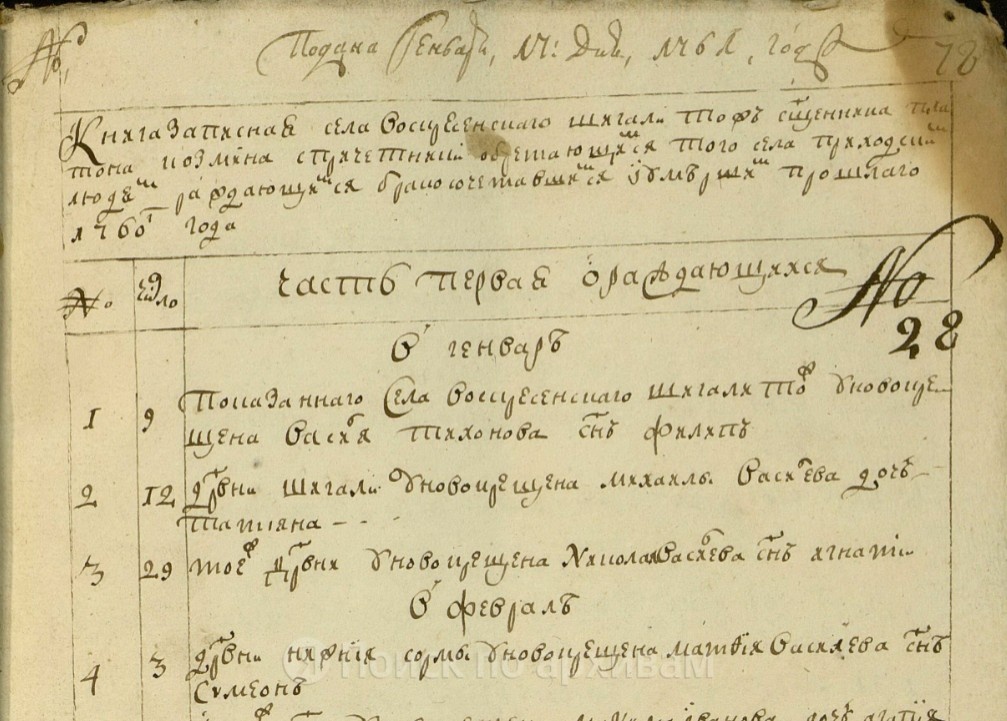 №
Подана Генваря, 17: дня, 1761, года
78
Книга Записная села Воскресенскаго шигали тож священника пла
тона козмина спричетники обретающихся того села приходски
людех раждающихся бракосочетавшихся иумерших прошлаго
1760 года
№ число часть первая ораждающихся №
28
В генваръ
1 9 Показаннаго Села Воскресенскаго шигали тож Уновокре
щена Василья тихонова снъ филипъ
2 12 дрвни шигали Уновокрещена михаила Васильева дочь
татияна
3 29 тоеж дрвни Уновокрещена Николая Васильева снъ игнати
В февралъ
4 3 дрвни нижния сормы Уновокрещена матфия Васильева снъ
Сумеонъ
Поиск по архивам